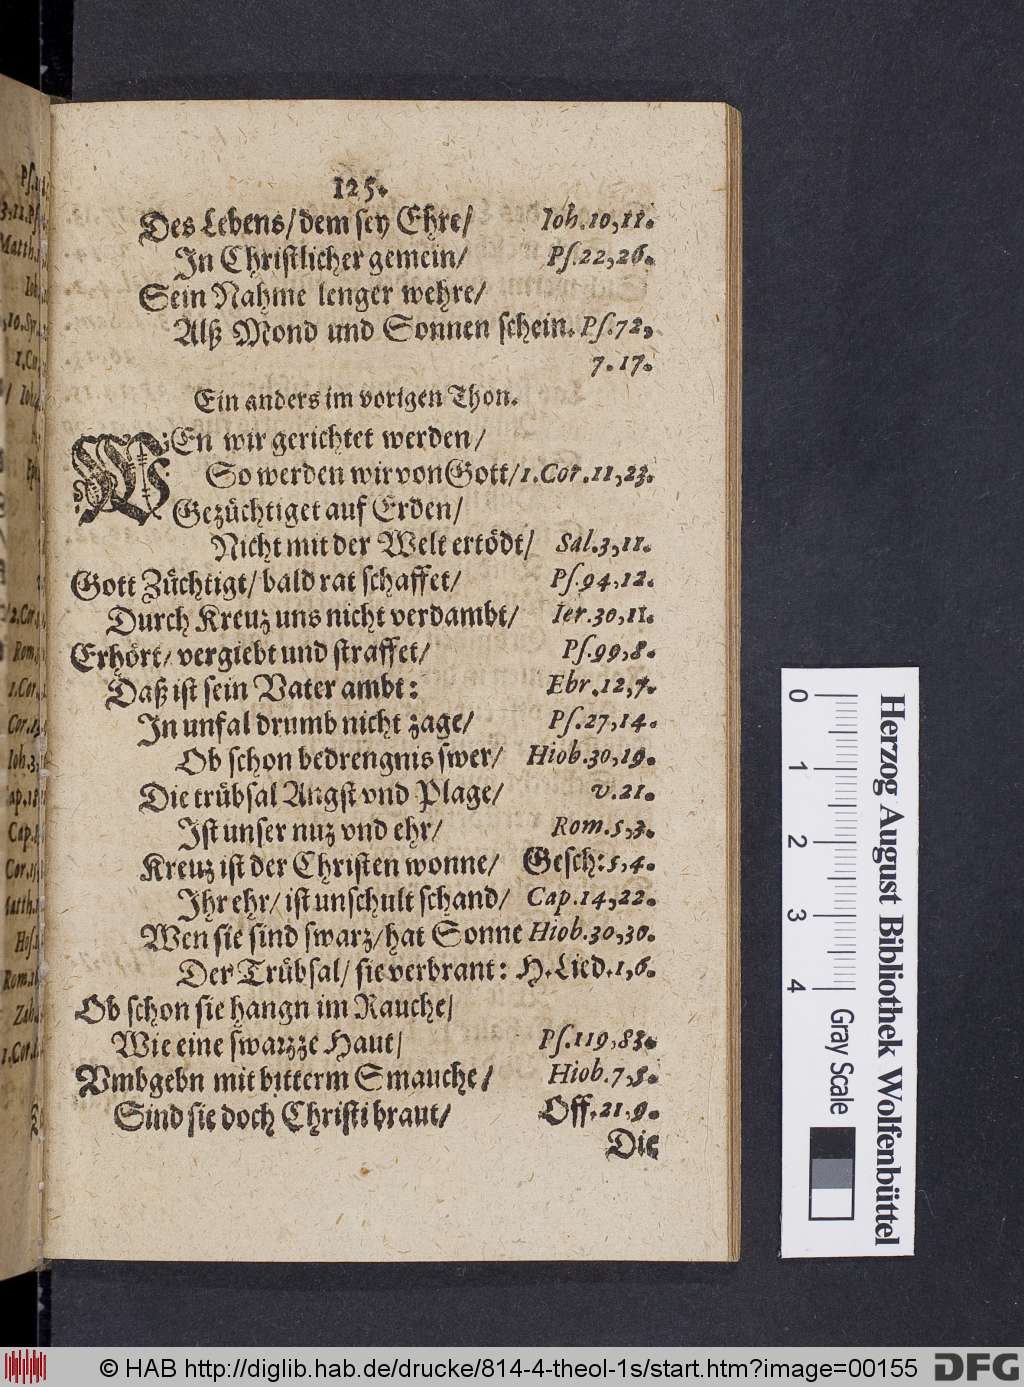 125.
Des Lebens/dem sey Ehre/ Ioh.10,11.
In Christlicher gemein/ Ps.22,26.
Sein Nahme lenger wehre/
Alß Mond und Sonnen schein. Ps.72,
7.17.
Ein anders im vorigen Thon.
WEn wir gerichtet werden/
So werden wir von Gott/1.Cor.11,23.
Gezüchtiget auf Erden/
Nicht mit der Welt ertödt/ Sal.3,11.
Gott Züchtigt/ bald rat schaffet/ Ps.94,12.
Durch Kreuz uns nicht verdambt/ Ier.30,11.
Erhört/ vergiebt und straffet/ Ps.99,8.
Daß ist sein Vater ambt: Ebr.12,7.
In unfal drumb nicht zage/ Ps.27,14.
Ob schon bedrengnis swer/ Hiob.30,19.
Die trübsal Angst vnd Plage/ v.21.
Ist unser nuz vnd ehr/ Rom.5,3.
Kreuz ist der Christen wonne/ Gesch:5,4.
Ihr ehr/ ist unschult schand/ Cap.14,22.
Wen sie sind swarz/hat Sonne Hiob.30,30.
Der Trübsal/ sie verbrant: H.Lied.1,6.
Ob schon sie hangn im Rauche/
Wie eine swarzze Haut/ Ps.119,83.
Vmbgebn mit bitterm Smauche/ Hiob.7,8.
Sind sie doch Christi braut/ Off.21,9.
Die
0 1 2 3 4
Herzog August Bibliothek Wolfenbüttel
Gray Scale
© HAB http://diglib.hab.de/drucke/814-4-theol-1s/start.htm?image=00155
DFG